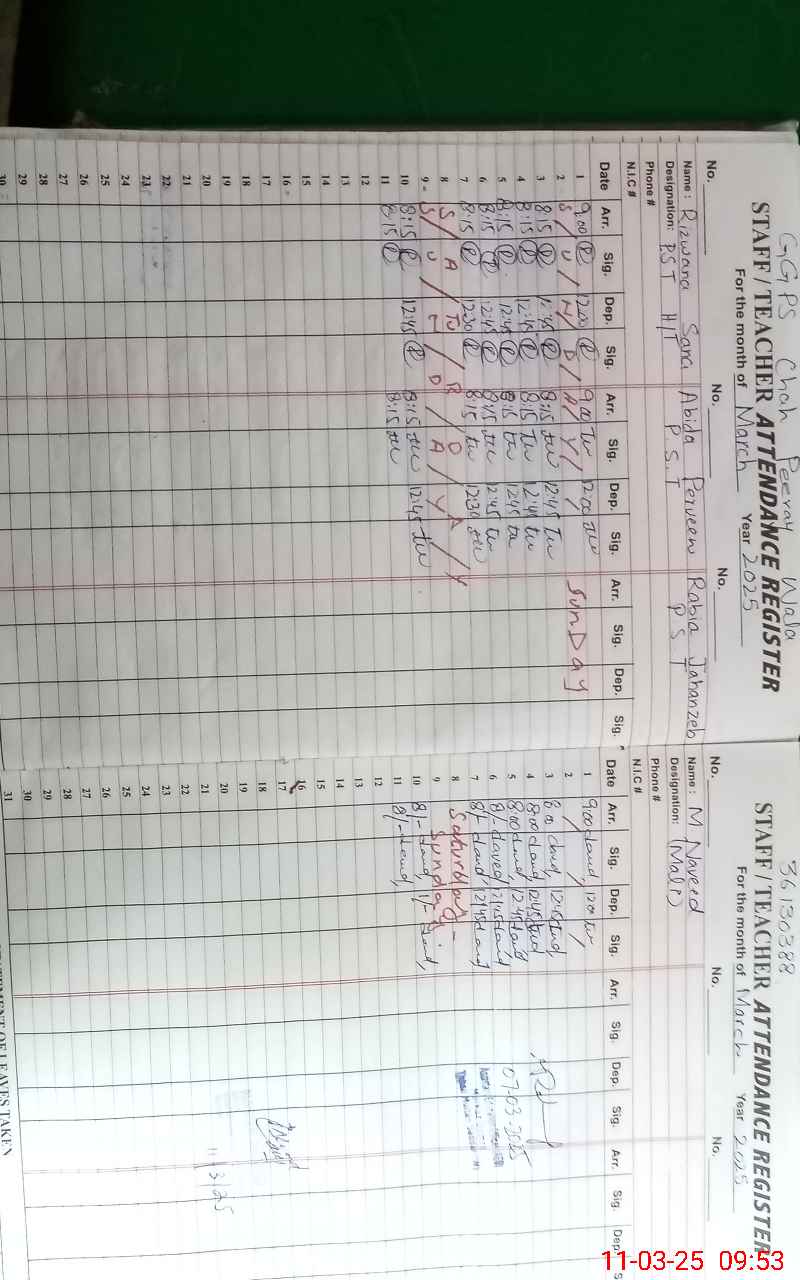 GGPS Chah Peerah Wala
STAFF / TEACHER ATTENDANCE REGISTER
For the month of March Year 2025
No. No. No.
Name : Rizwana Sara Abida Perveen Rabia Jahanzeb
Designation: PST H/T P.S.T P S T
Phone #
N.I.C #
Date Arr. Sig. Dep. Sig. Arr. Sig. Dep. Sig. Arr. Sig. Dep. Sig.
1 9:00 12:00 9:00 12:00
2 S / U / N / D / A / Y / SunDay
3 8:15 12:45 8:15 12:45
4 8:15 12:45 8:15 12:45
5 8:15 12:45 8:15 12:45
6 8:15 12:45 8:15 12:45
7 8:15 12:30 8:15 12:30
8 S A TU R D A Y
9 S / U / N / D / A / Y
10 8:15 12:45 8:15 12:45
11 8:15 8:15
12
13
14
15
16
17
18
19
20
21
22
23
24
25
26
27
28
29
30
36130388
STAFF / TEACHER ATTENDANCE REGISTER
For the month of March Year 2025
No. No. No.
Name : M Naveed
Designation: (Mali)
Phone #
N.I.C #
Date Arr. Sig. Dep. Sig. Arr. Sig. Dep. Sig. Arr. Sig. Dep. S
1 9:00 12:00
2
3 8:00 12:45
4 8:00 12:45
5 8:00 12:45
6 8/- 12:45
7 8/- 12:45
8 Saturday
9 Sunday
10 8/- 1/-
11 8/-
12
13
14
15
16
17
18
19
20
21
22
23
24
25
26
27
28
29
30
31
07-03-2025
11/3/25
STATEMENT OF LEAVES TAKEN
11-03-25 09:53